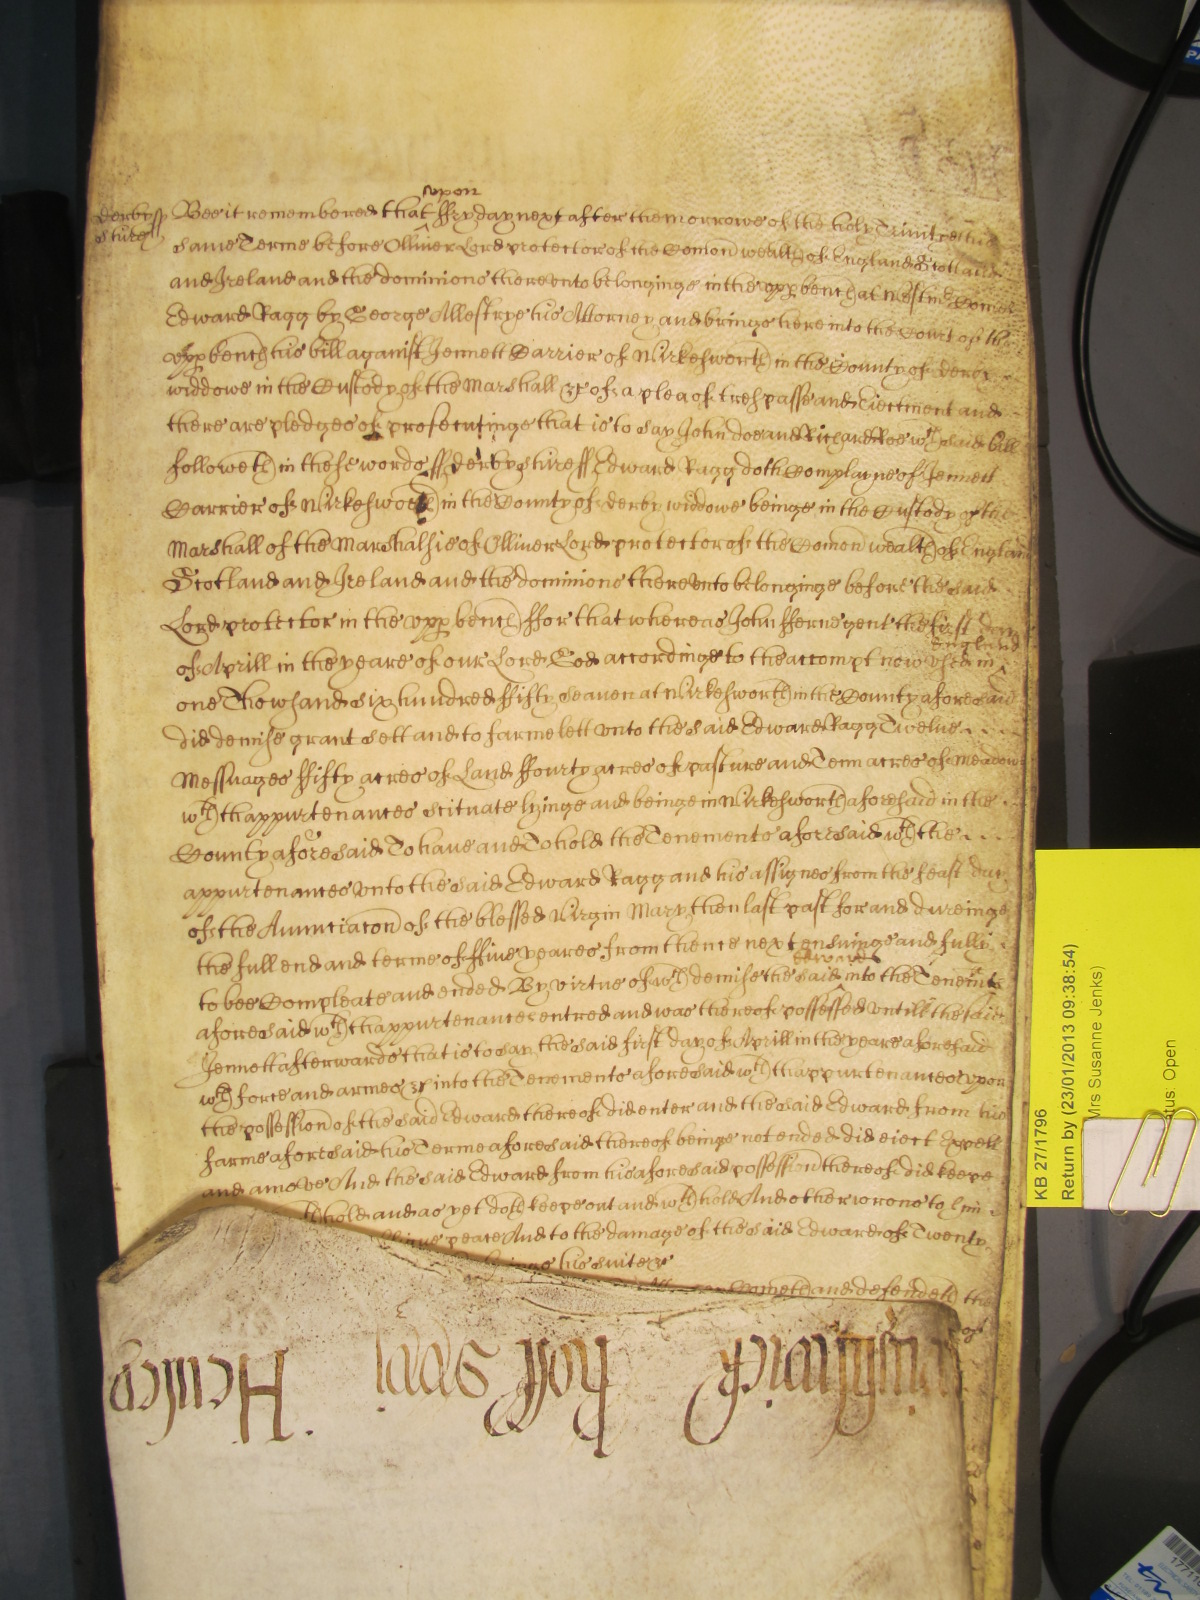 upon
derbyss Bee it remembred that ffryday next after the morrowe of the holy Trinitie this
shire ss same Terme before Olliver Lord protector of the Comon wealth of England Scotland
and Ireland and the dominions thereunto belonginge in the upp bench at Westmr Comes
Edward Ragg by George Allestrye his Attorney and brings here into the Court of the
upp bench his bill against Jennett Carrier of Wirkesworth in the County of derby
widdowe in the Custody of the Marshall &c of a plea of trespasse and Eiectment and
there are pledges of prosecutinge that is to say John doe and Richard Roe wch said bill
followeth in these words ss derbyshire ss Edward Ragg doth Complayne of Jennett
Carrier of Wirkesworth in the County of derby widdowe beinge in the Custody of the
Marshall of the Marshalsie of Olliver Lord protector of the Comon wealth of England
Scotland and Ireland and the dominions thereunto belonginge before the said
Lord protector in the upp bench ffor that whereas John fferne gent the first day
England
of Aprill in the yeare of our Lord God accordinge to the accompt now used in
one Thowsand six hundred ffifty seaven at Wirkesworth in the County aforesaid
did demise grant sett and to farme lett unto the said Edward Ragg Twelve
Messuages ffifty acres of Land ffourty acres of pasture and Tenn acres of meadowe
wth thappurtenances scituate lyinge and beinge in Wirkesworth aforesaid in the
County aforesaid To have and To hold the Tenements aforesaid wth the
appurtenances unto the said Edward Ragg and his assignes from the feast day
of the Annunciacon of the blessed Virgin Mary then last past for and dureinge
the full end and terme of ffive yeares from thence next ensuinge and fully
Edward
to bee Compleate and ended By virtue of wch demise the said into the Tenemts
aforesaid wth thappurtenances entred and was thereof possessed untill the said
Jennett afterwards that is to say the said first day of Aprill in the yeare aforesaid
wth force and armes &c into the Tenements aforesaid wth thappurtenances upon
the possession of the said Edward thereof did enter and the said Edward from his
farme aforesaid his Terme aforesaid thereof beinge not ended did eiect Expell
and amove And the said Edward from his aforesaid possession thereof did keepe
hold and as yet doth keepe out and wthhold And other wrongs to him
peace And to the damage of the said Edward of Twenty
his suite &c
Cometh and defendeth the
KB 27/1796
Return by (23/01/2013 09:38:54)
Mrs Susanne Jenks)
Open